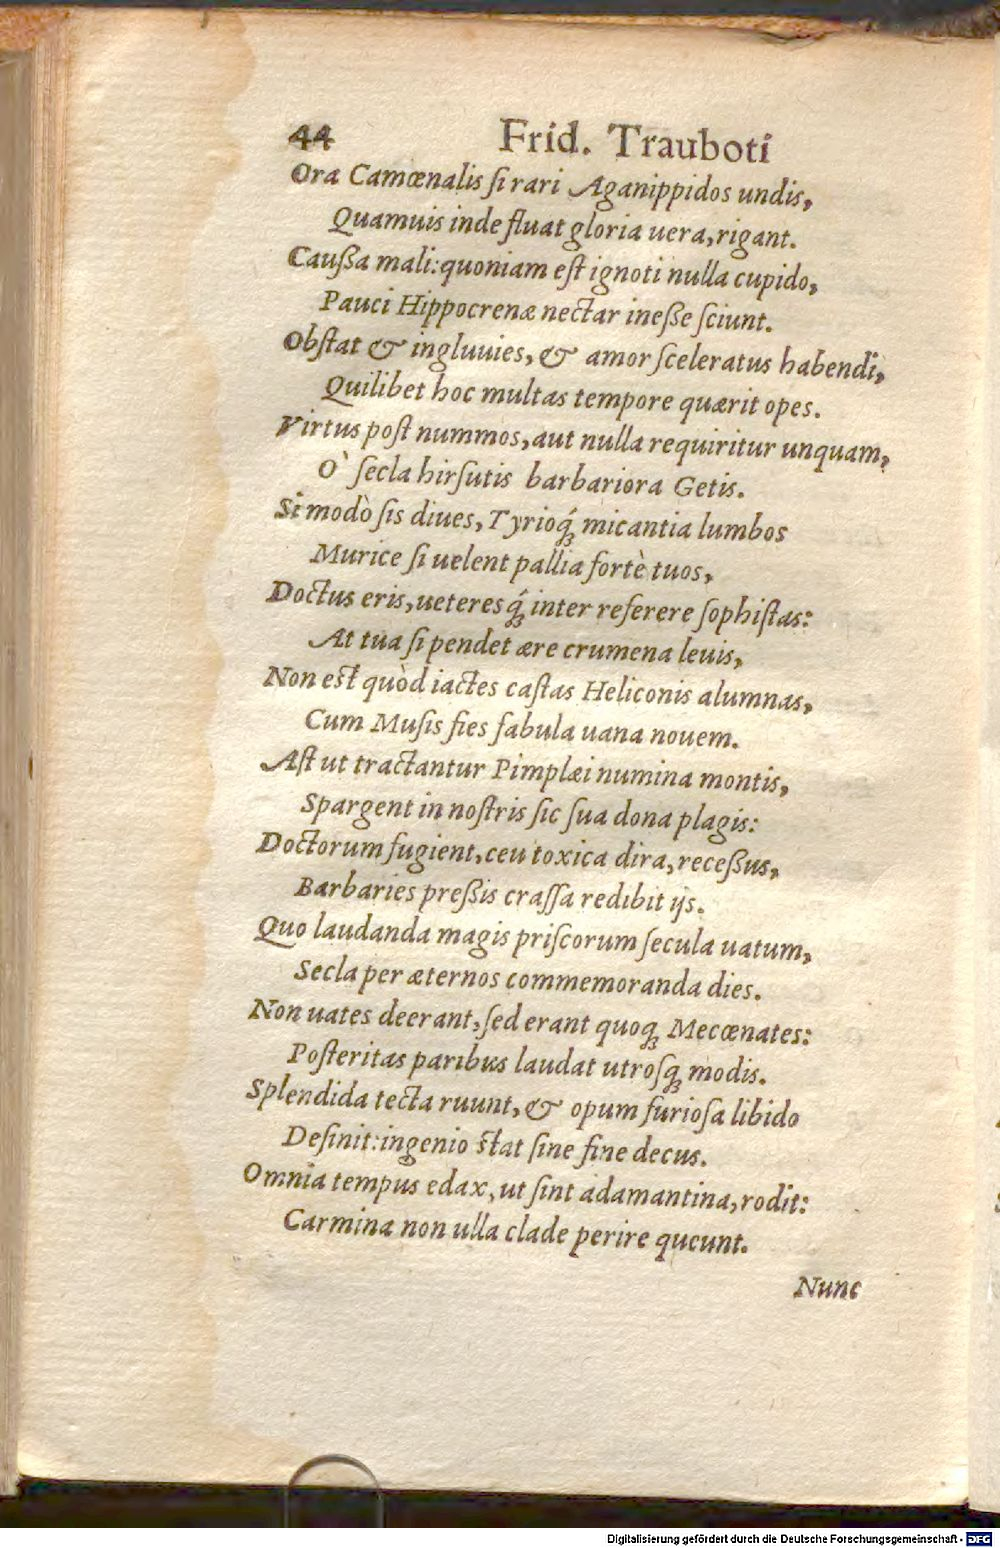 44 Frid. Trauboti
Ora Camœnalis ſi rari Aganippidos undis,
Quamuis inde fluat gloria uera, rigant.
Cauſſa mali: quoniam eſt ignoti nulla cupido,
Pauci Hippocrenæ nectar ineſſe ſciunt.
Obſtat & ingluuies, & amor ſceleratus habendi,
Quilibet hoc multas tempore quærit opes.
Virtus poſt nummos, aut nulla requiritur unquam,
O` ſecla hirſutis barbariora Getis.
Si modò ſis diues, Tyrioq́; micantia lumbos
Murice ſi uelent pallia fortè tuos,
Doctus eris, ueteresq́; inter referere ſophiſtas:
At tua ſi pendet ære crumena leuis,
Non eſt quòd iactes caſtas Heliconis alumnas,
Cum Muſis fies fabula uana nouem.
Aſt ut tractantur Pimplæi numina montis,
Spargent in noſtris ſic ſua dona plagis:
Doctorum fugient, ceu toxica dira, receſſus,
Barbaries preſſis craſſa redibit ijs.
Quo laudanda magis priſcorum ſecula uatum,
Secla per æternos commemoranda dies.
Non uates deerant, ſed erant quoq; Mecœnates:
Poſteritas paribus laudat utroſq; modis.
Splendida tecta ruunt, & opum furioſa libido
Deſinit: ingenio ſtat ſine fine decus.
Omnia tempus edax, ut ſint adamantina, rodit:
Carmina non ulla clade perire queunt.
Nunc
Digitalisierung gefördert durch die Deutsche Forschungsgemeinschaft - DFG